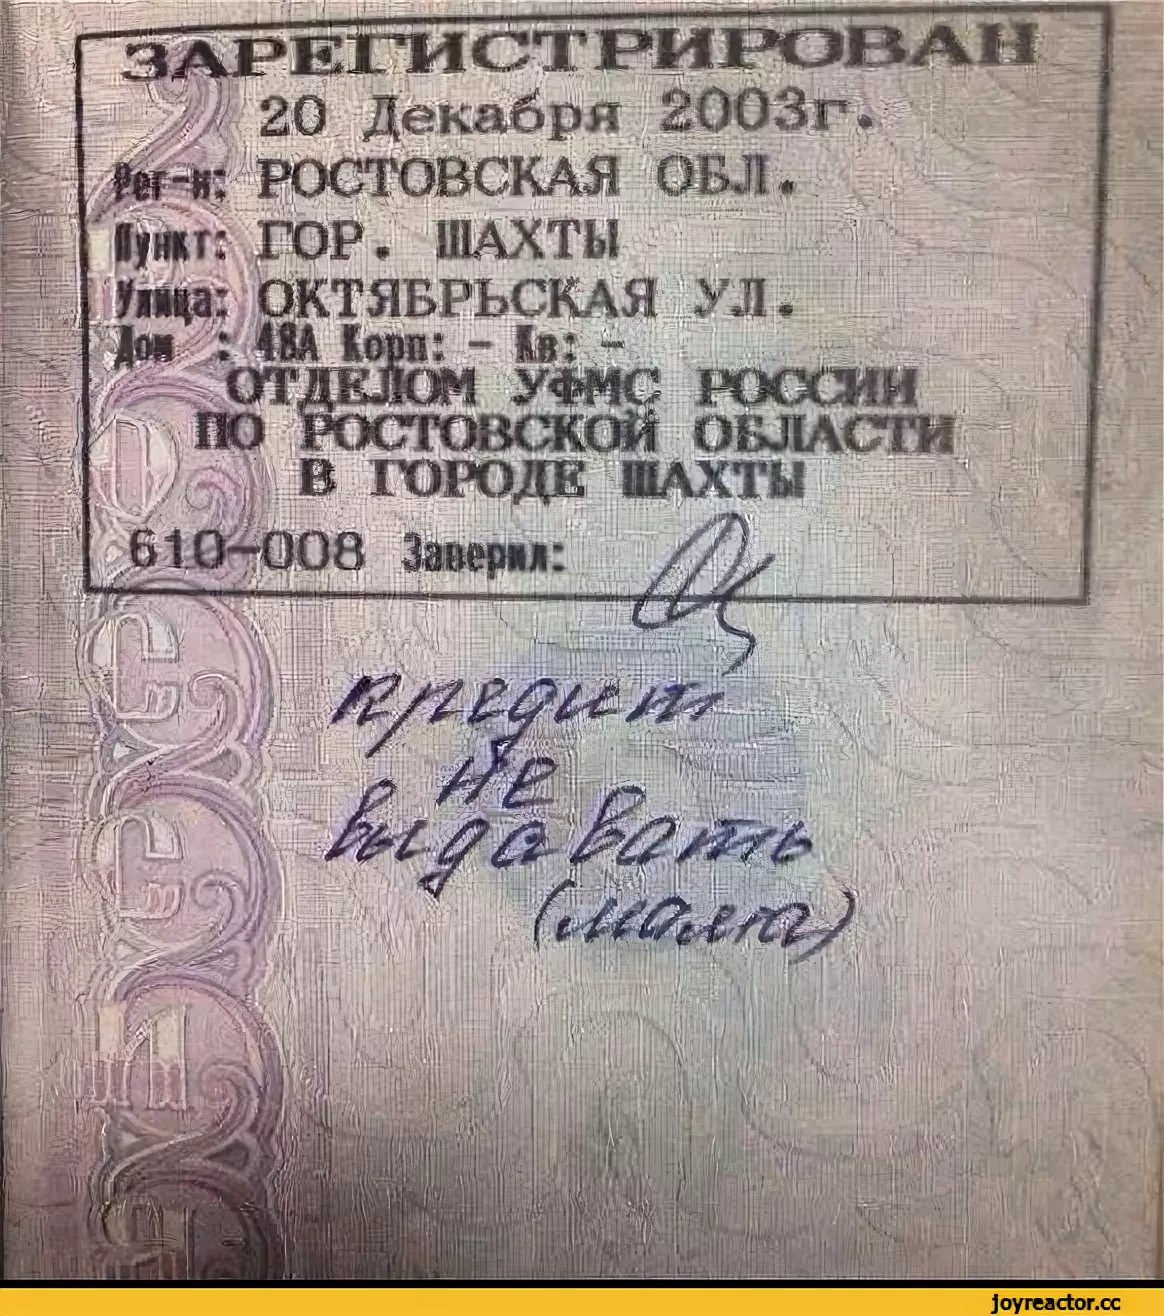 ЗАРЕГИСТРИРОВАН
20 Декабря 2003г.
Рег-н: РОСТОВСКАЯ ОБЛ.
Пункт: ГОР. ШАХТЫ
Улица: ОКТЯБРЬСКАЯ УЛ.
Дом : 48А Корп: - Кв: -
ОТДЕЛОМ УФМС РОССИИ
ПО РОСТОВСКОЙ ОБЛАСТИ
В ГОРОДЕ ШАХТЫ
610-008 Заверил:
кредит
не
выдавать
(мама)
joyreactor.cc